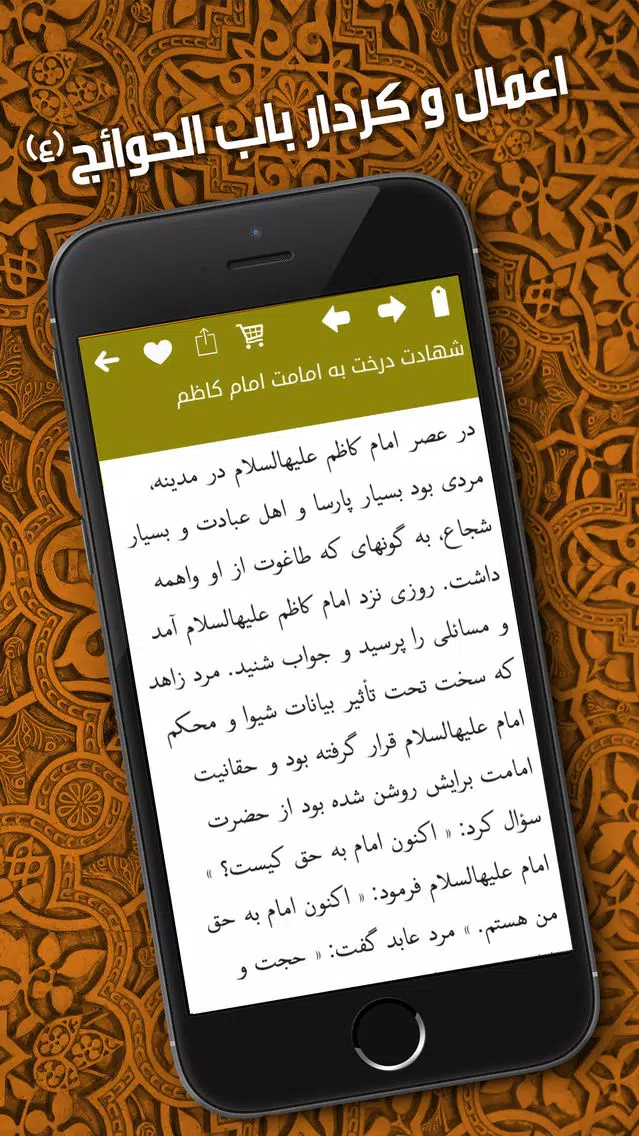 اعمال و کردار باب الحوائج (ع)
شهادت درخت به امامت امام کاظم
در عصر امام کاظم علیهالسلام در مدینه،
مردی بود بسیار پارسا و اهل عبادت و بسیار
شجاع، به گونهای که طاغوت از او واهمه
داشت. روزی نزد امام کاظم علیهالسلام آمد
و مسائلی را پرسید و جواب شنید. مرد زاهد
که سخت تحت تأثیر بیانات شیوا و محکم
امام علیهالسلام قرار گرفته بود و حقانیت
امامت برایش روشن شده بود از حضرت
سؤال کرد: « اکنون امام به حق کیست؟ »
امام علیهالسلام فرمود: « اکنون امام به حق
من هستم. » مرد عابد گفت: « حجت و